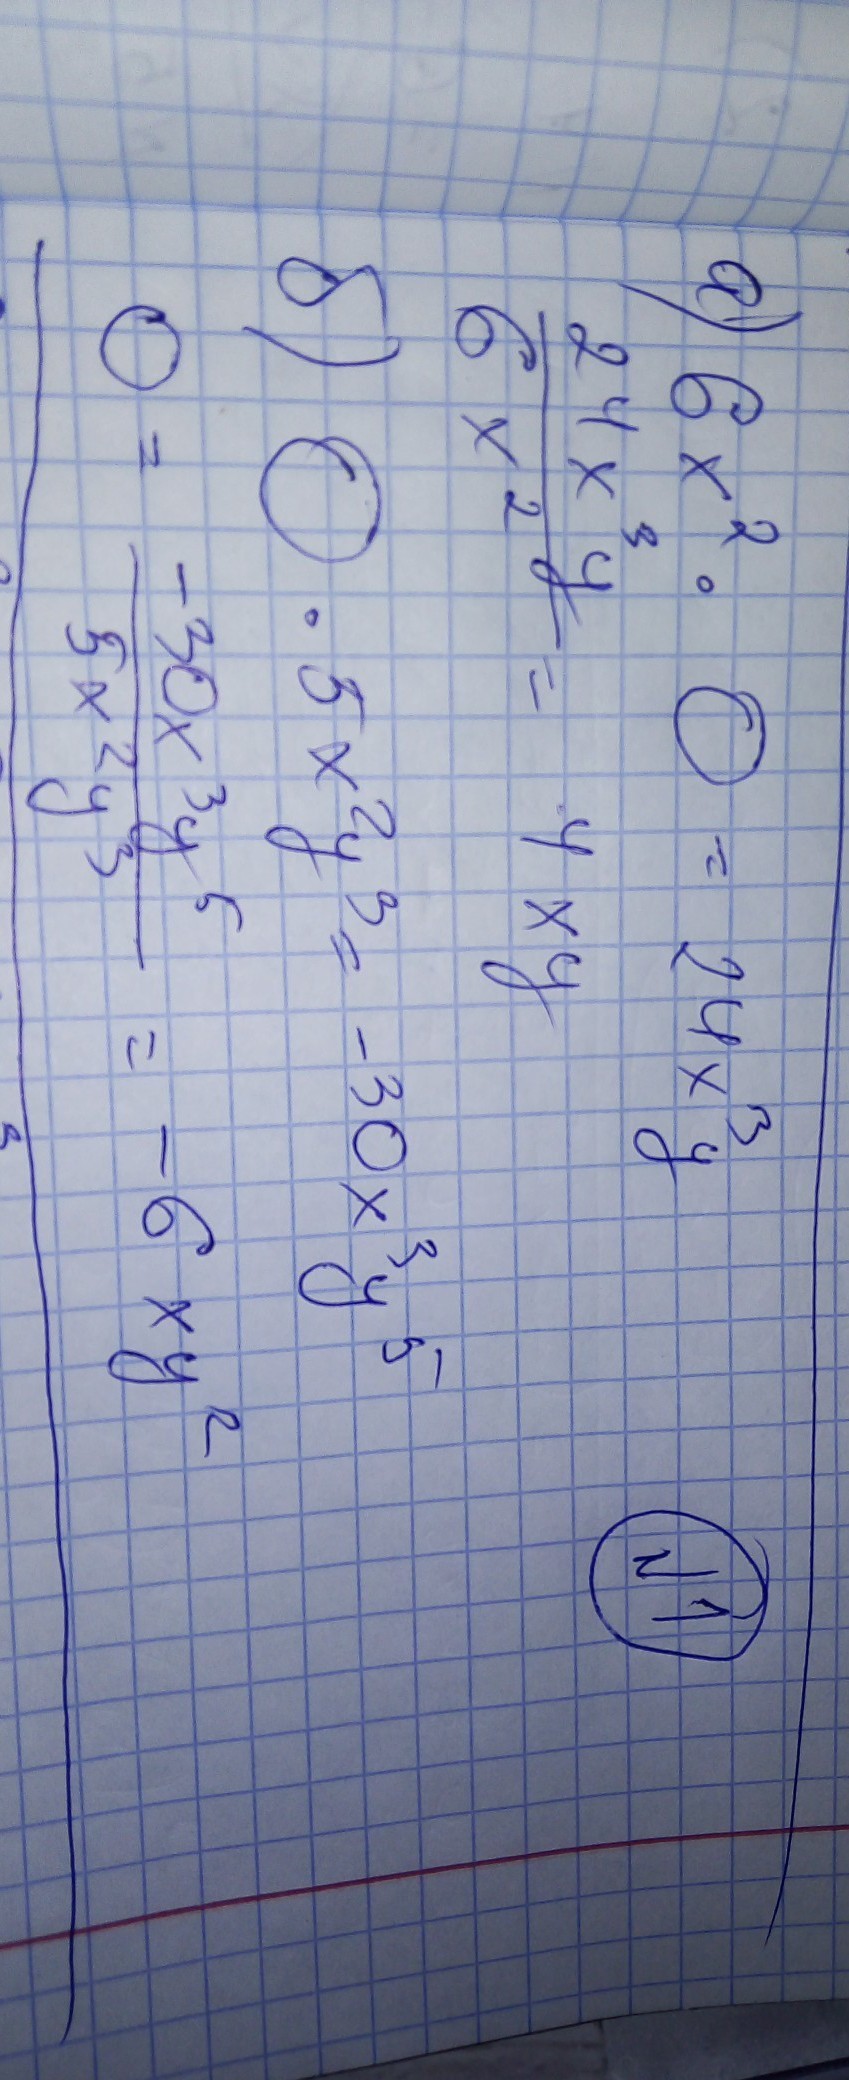 №1
а) 6x² · ○ = 24x³y
24x³y / 6x² = 4xy
б) ○ · 5x²y³ = -30x³y⁵
○ = -30x³y⁵ / 5x²y³ = -6xy²